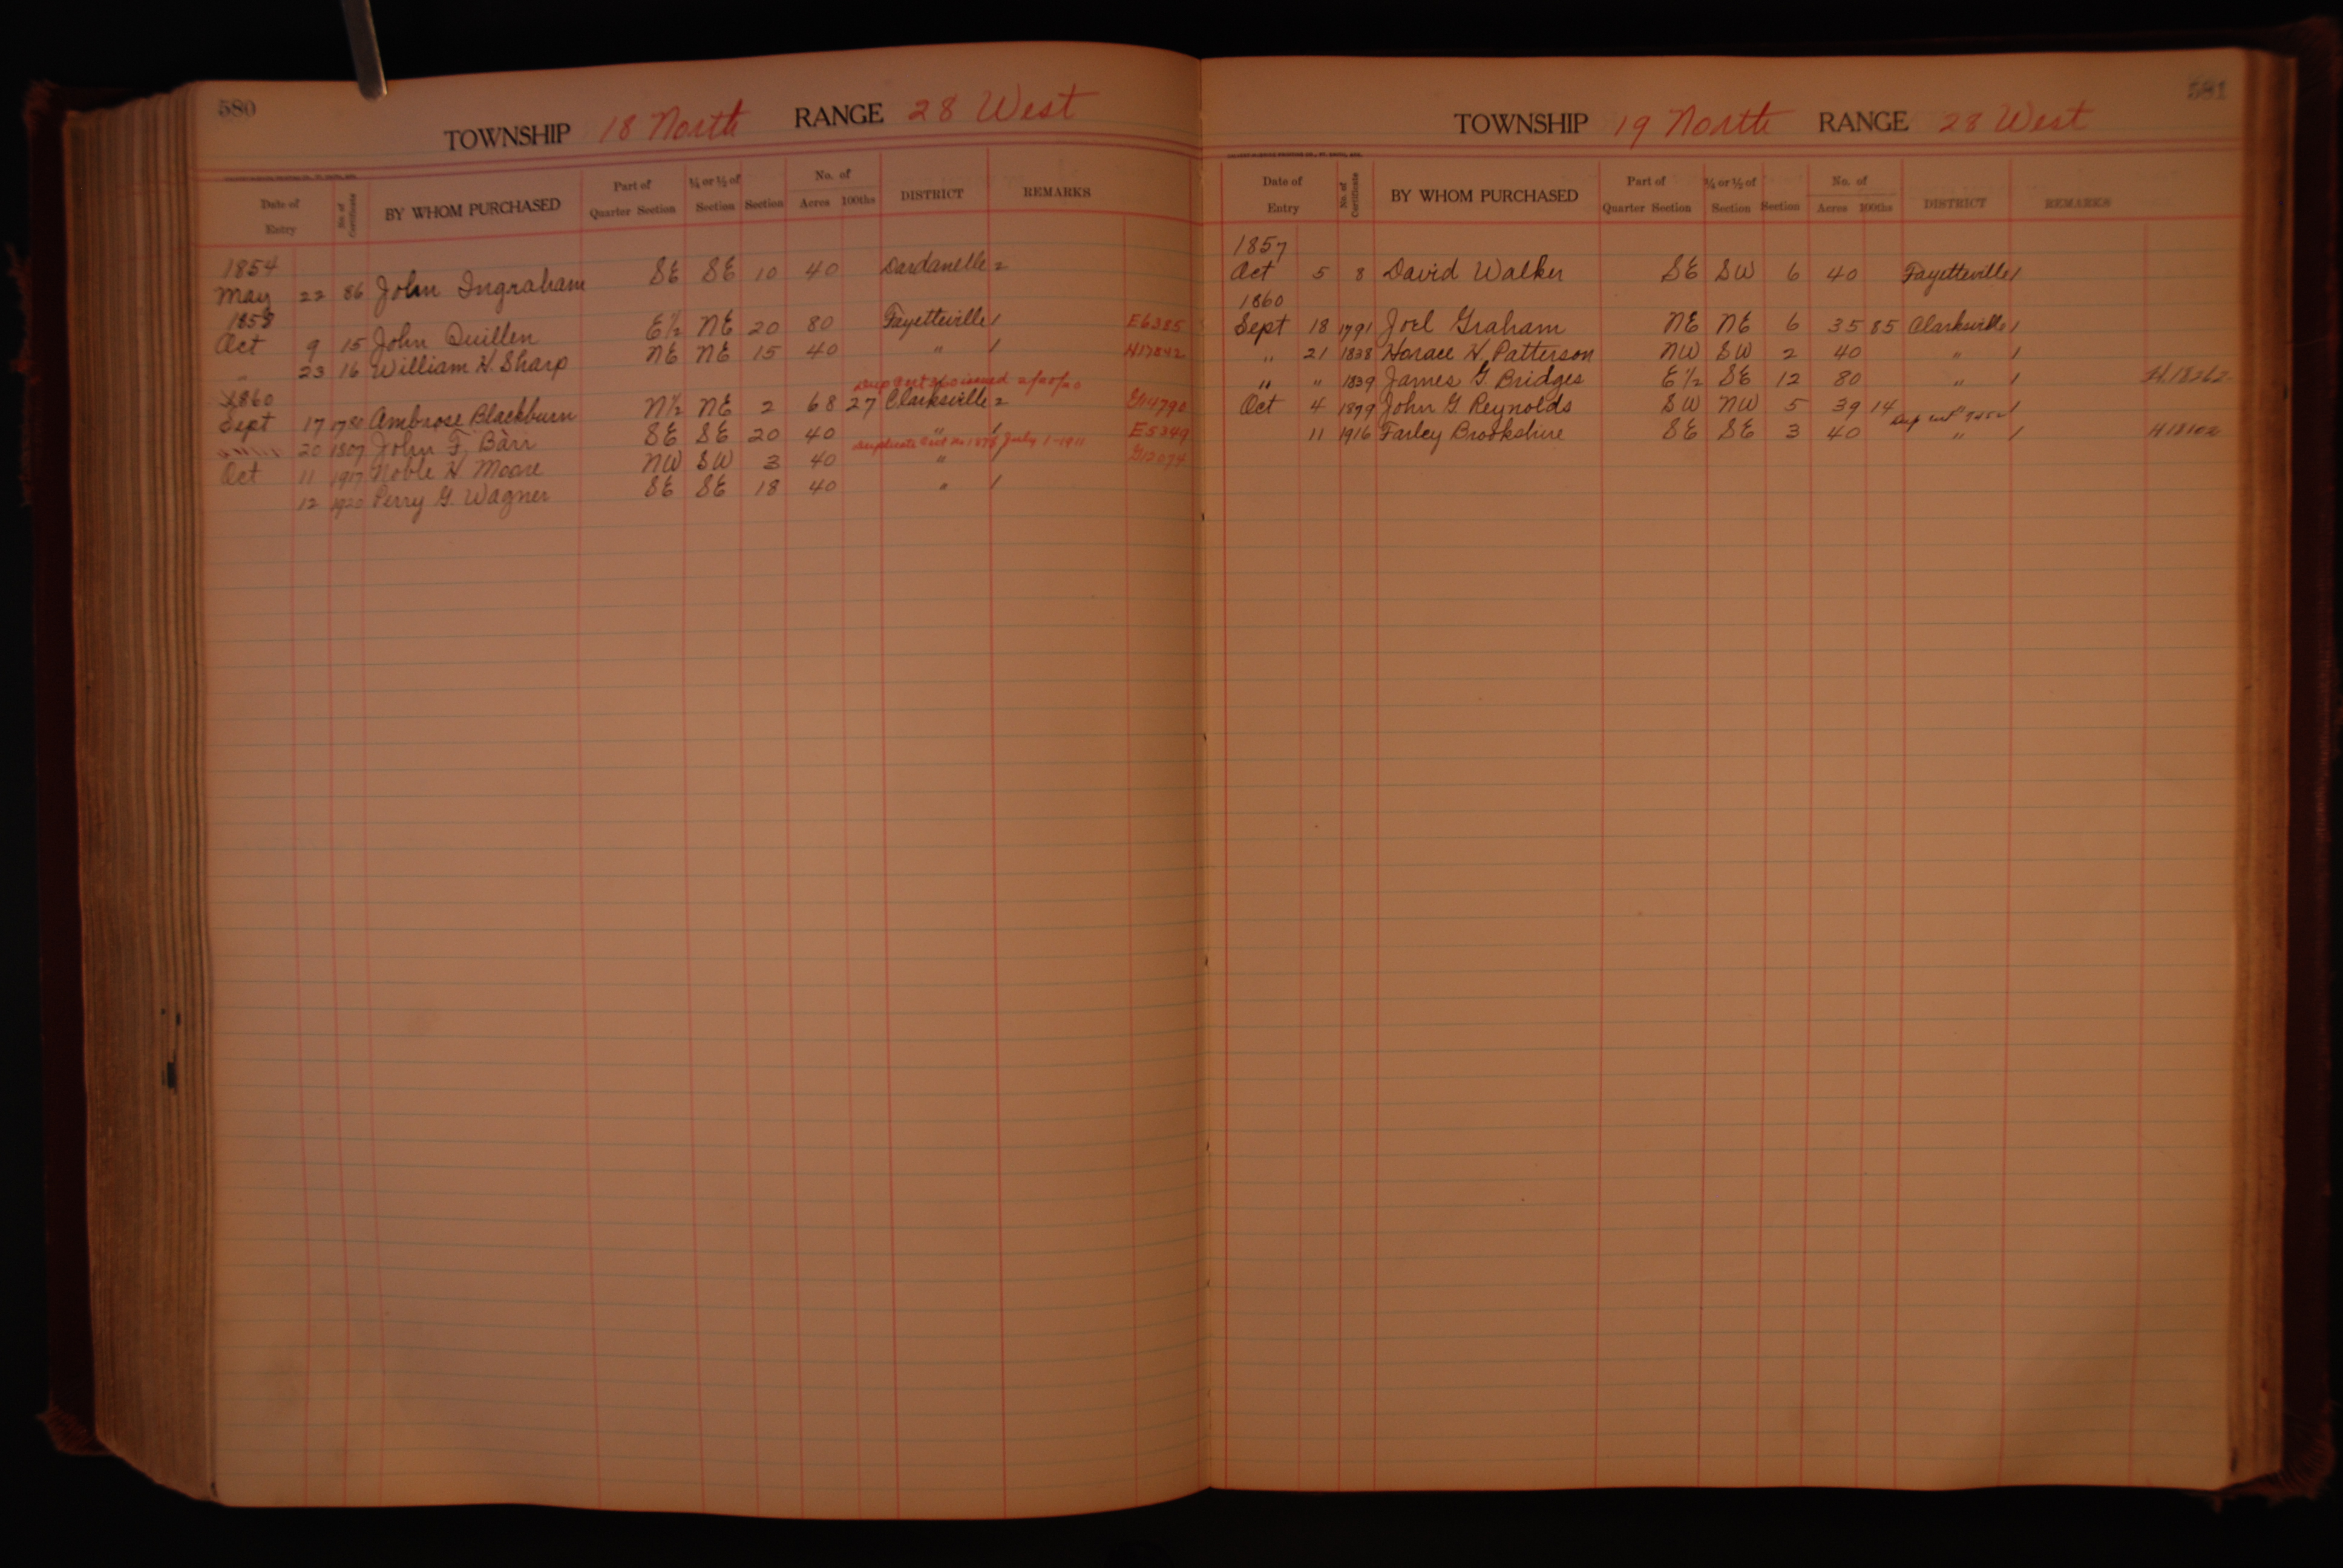 580
TOWNSHIP 18 North RANGE 28 West
Date of Entry No. of Certificate BY WHOM PURCHASED Part of Quarter Section ¼ or ½ of Section Section No. of Acres 100ths DISTRICT REMARKS
1854
May 22 86 John Ingraham SE SE 10 40 Dardanelle 2
1858
Oct 9 15 John Quillen E½ NE 20 80 Fayetteville 1 E6385
" 23 16 William H. Sharp NE NE 15 40 " 1 H17842
1860 issued
Sept 17 1780 Ambrose Blackburn N½ NE 2 68 27 Clarksville 2 G14790
20 1807 John F, Barr SE SE 20 40 " 1 E5349
Duplicate July 1-1911
Oct 11 1917 Noble H. Moore NW SW 3 40 " G12074
12 1920 Perry G. Wagner SE SE 18 40 " 1
581
TOWNSHIP 19 North RANGE 28 West
Date of Entry No. of Certificate BY WHOM PURCHASED Part of Quarter Section ¼ or ½ of Section Section No. of Acres 100ths DISTRICT REMARKS
1857
Oct 5 8 David Walker SE SW 6 40 Fayetteville 1
1860
Sept 18 1791 Joel Graham NE NE 6 35 85 Clarksville 1
" 21 1838 Horace H. Patterson NW SW 2 40 " 1
" " 1839 James G. Bridges E½ SE 12 80 " 1 H.18262
Oct 4 1879 John G Reynolds SW NW 5 39 14 1
11 1916 Farley Brookshire SE SE 3 40 " 1 H18102